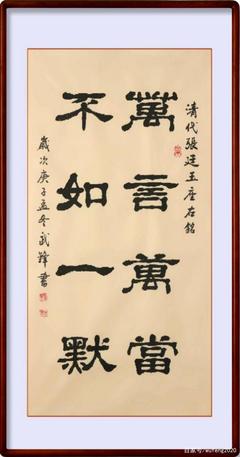 清代張廷玉座右銘
萬言萬當
不如一默
歲次庚子孟冬武鋒書
百家号/wufeng2020